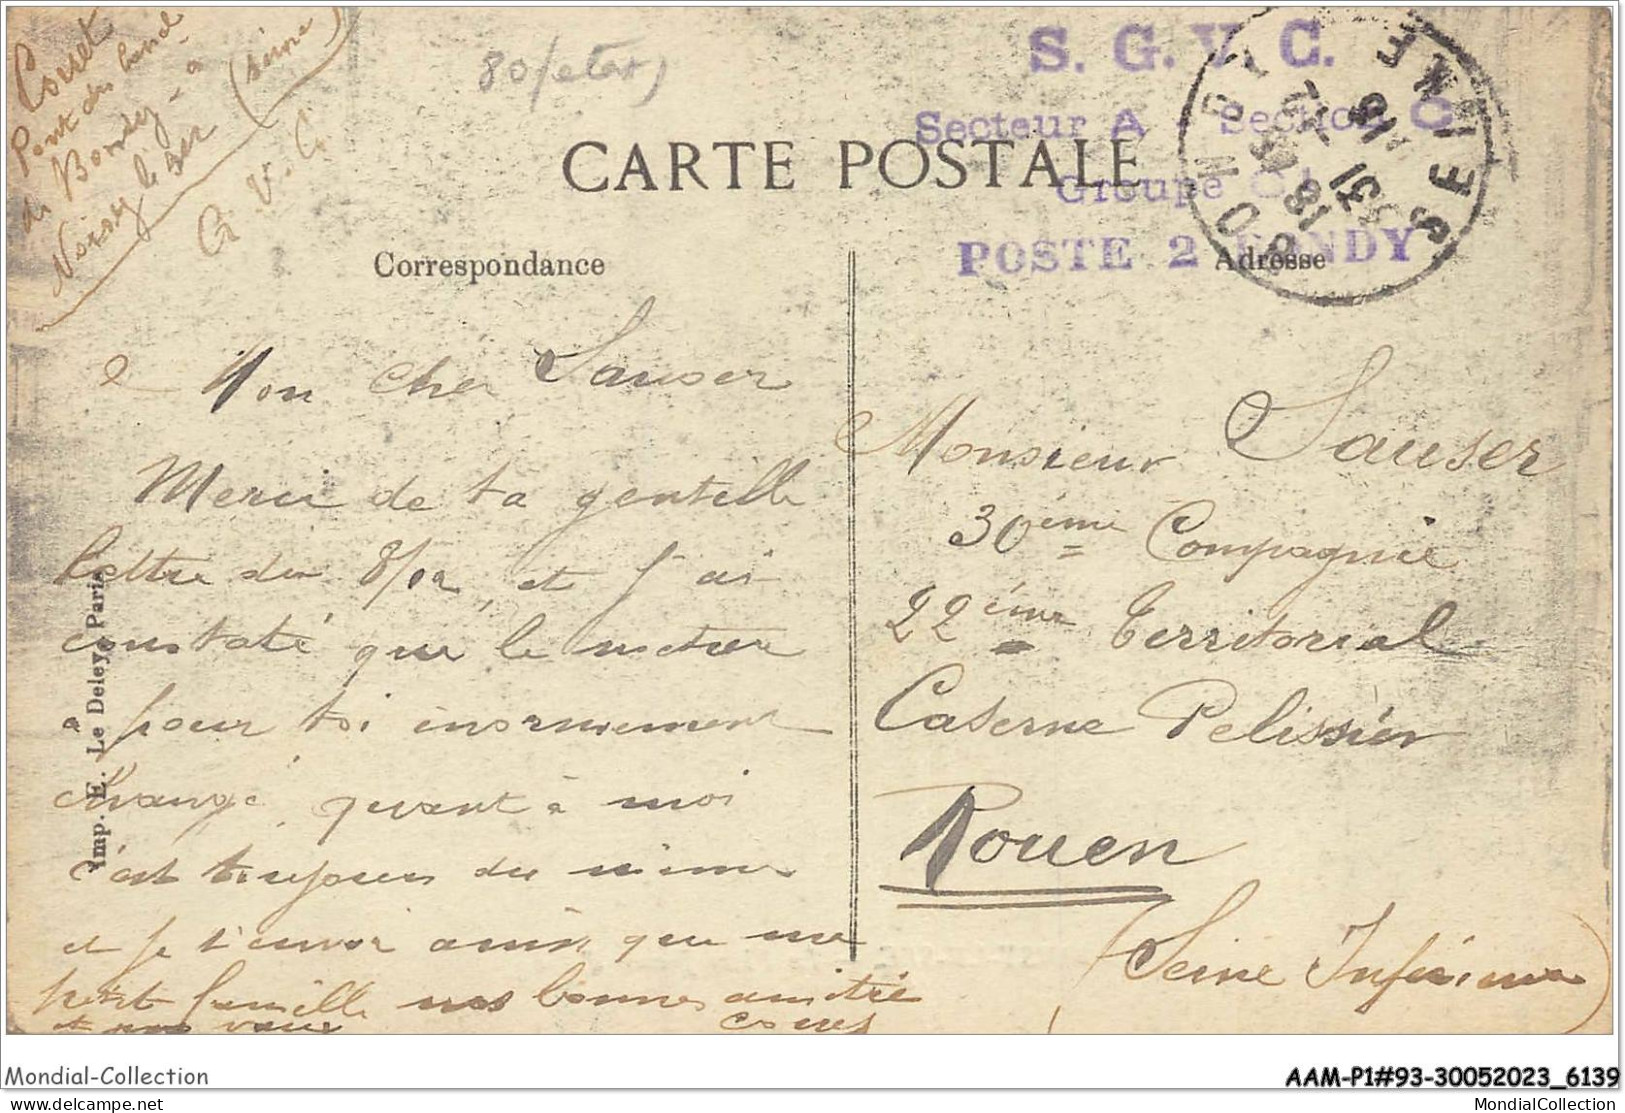 Corret
Pont du
de Bondy - à
Noisy le Sec (Seine)
G. V. C.
80/
S. G. V. C.
Secteur A Section C
Groupe
POSTE 2 BONDY
SEINE
18
31
CARTE POSTALE
Correspondance
Adresse
Mon cher Sauser
Merci de ta gentille
lettre du 8/12, et j'ai
constaté que le métier
a pour toi énormément
changé, quant à moi
c'est toujours du même
et je t'envoi ainsi que ma
petit famille nos bonnes amitié
et nos vœux
Corret
Monsieur Sauser
30ème Compagnie
22ème Territorial
Caserne Pelissier
Rouen
(Seine Inférieure)
Imp. E. Le Deley, Paris
Mondial-Collection
AAM-P1#93-30052023_6139
delcampe.net
MondialCollection